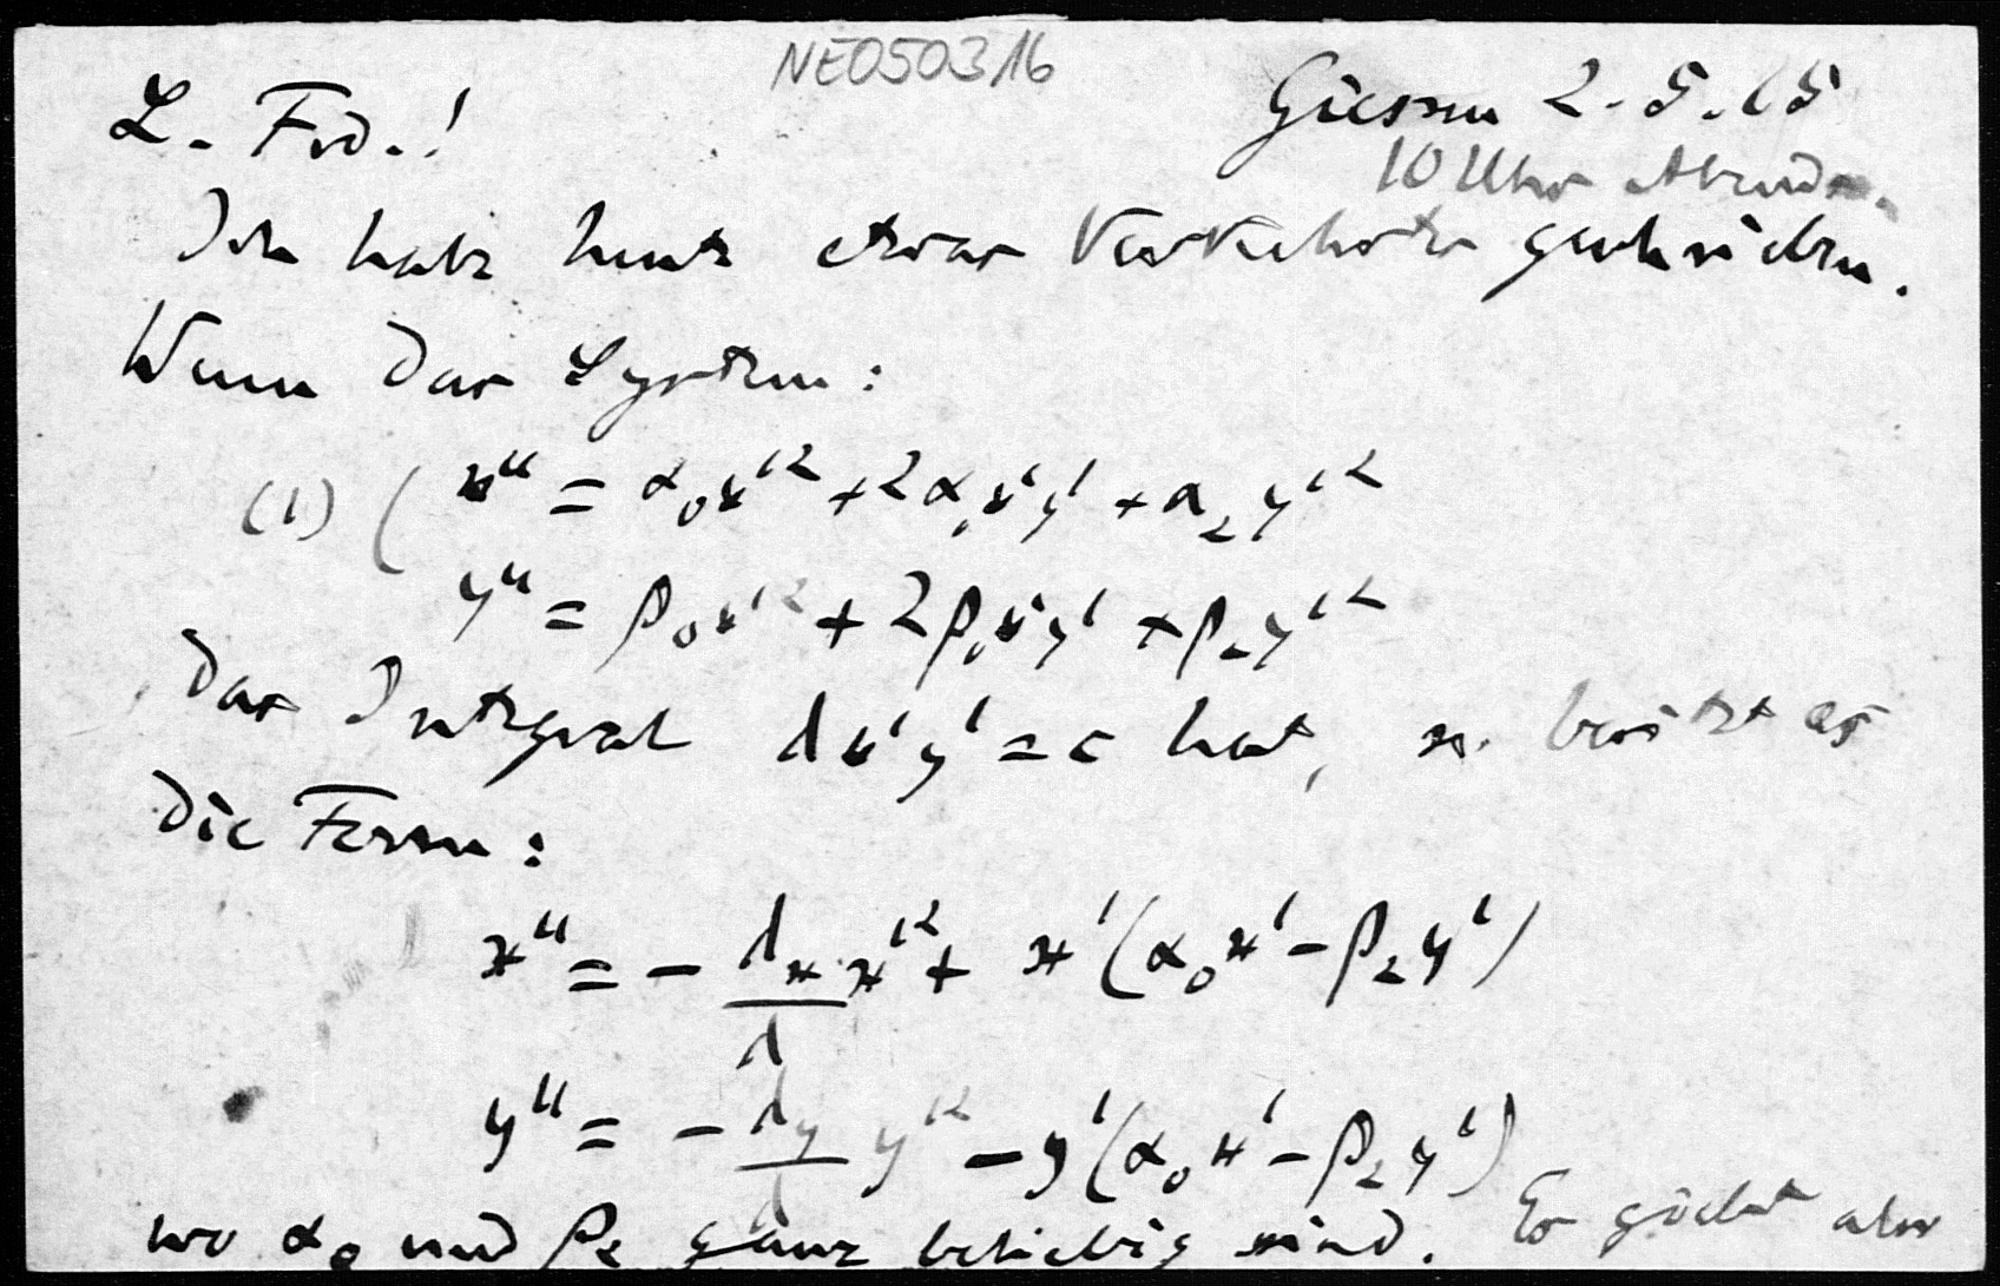 NE050316
Giessen 2.5.15
L. Frd.!
10 Uhr Abends.
Ich habe heute etwas Verkehrtes geschrieben.
Wenn das System:
(1) ( x'' = α₀x'² + 2α₁x'y' + α₂y'²
y'' = β₀x'² + 2β₁x'y' + β₂y'²
das Integral λx'y' = c hat, so besitzt es
die Form:
x'' = - λₓ/λ x'² + x'(α₀x' - β₂y')
y'' = - λy/λ y'² - y'(α₀x' - β₂y')
wo α₀ und β₂ ganz beliebig sind. Es giebt also